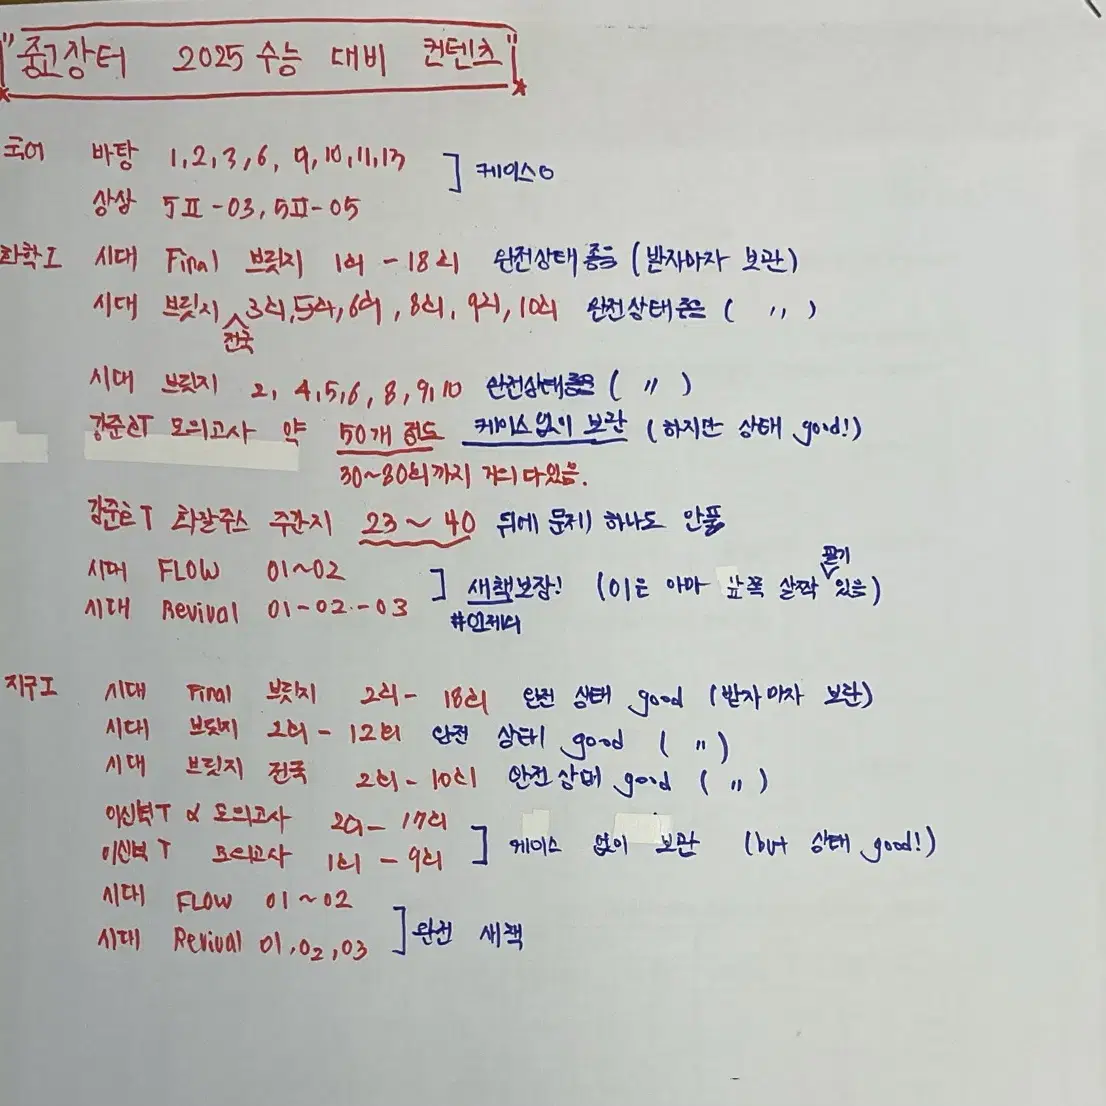 "중고장터 2025 수능 대비 컨텐츠"
국어 바탕 1,2,3,6, 9,10,11,13 ] 케이스O
상상 5Ⅱ-03, 5Ⅱ-05
화학Ⅰ 시대 Final 브릿지 1회 - 18회 완전상태좋음 (받자마자 보관)
시대 브릿지 전국 3회,5회,6회, 8회, 9회, 10회 완전상태좋음 ( 〃 )
시대 브릿지 2, 4,5,6, 8, 9,10 완전상태좋음 ( 〃 )
강준호T 모의고사 약 50개 정도 케이스 없이 보관 (하지만 상태 good!)
30~80회까지 거의 다있음.
강준호T 화잘주스 주간지 23 ~ 40 뒤에 문제 하나도 안품
시대 FLOW 01~02 ] 새책보장! (01은 아마 앞쪽 살짝 필기 있음)
시대 Revival 01-02-03 #언제나
지구Ⅰ 시대 Final 브릿지 2회 - 18회 완전 상태 good (받자마자 보관)
시대 브릿지 2회 - 12회 완전 상태 good ( 〃 )
시대 브릿지 전국 2회 - 10회 완전상태 good ( 〃 )
이신혁T α 모의고사 2회 - 17회 ] 케이스 없이 보관 (but 상태 good!)
이신혁T 모의고사 1회 - 9회
시대 FLOW 01~02 ] 완전 새책
시대 Revival 01,02,03